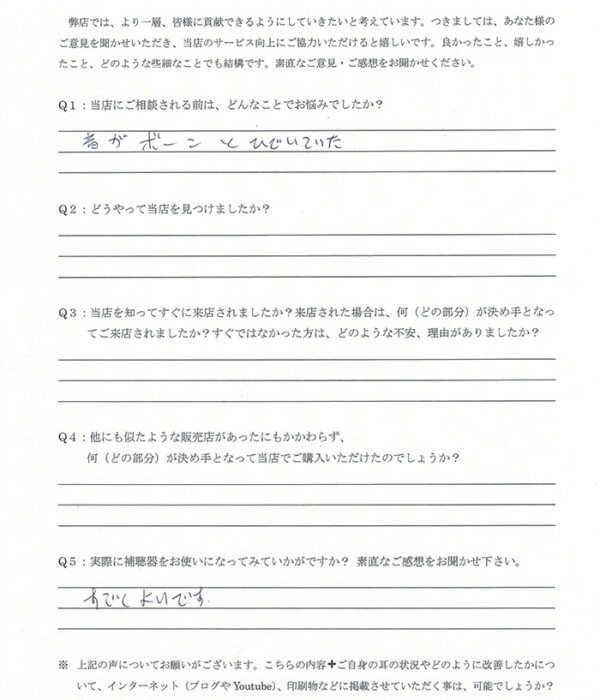 弊店では、より一層、皆様に貢献できるようにしていきたいと考えています。つきましては、あなた様の
ご意見を聞かせいただき、当店のサービス向上にご協力いただけると嬉しいです。良かったこと、嬉しかっ
たこと、どのような些細なことでも結構です。素直なご意見・ご感想をお聞かせください。
Q1：当店にご相談される前は、どんなことでお悩みでしたか？
音がボーンとひびいていた
Q2：どうやって当店を見つけましたか？
Q3：当店を知ってすぐに来店されましたか？来店された場合は、何（どの部分）が決め手となっ
てご来店されましたか？すぐではなかった方は、どのような不安、理由がありましたか？
Q4：他にも似たような販売店があったにもかかわらず、
何（どの部分）が決め手となって当店でご購入いただけたのでしょうか？
Q5：実際に補聴器をお使いになってみていかがですか？ 素直なご感想をお聞かせ下さい。
よいです.
※ 上記の声についてお願いがございます。こちらの内容✚ご自身の耳の状況やどのように改善したかにつ
いて、インターネット（ブログや Youtube）、印刷物などに掲載させていただく事は、可能でしょうか？